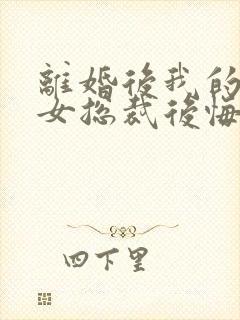 離婚後我的
女總裁後悔
四下里